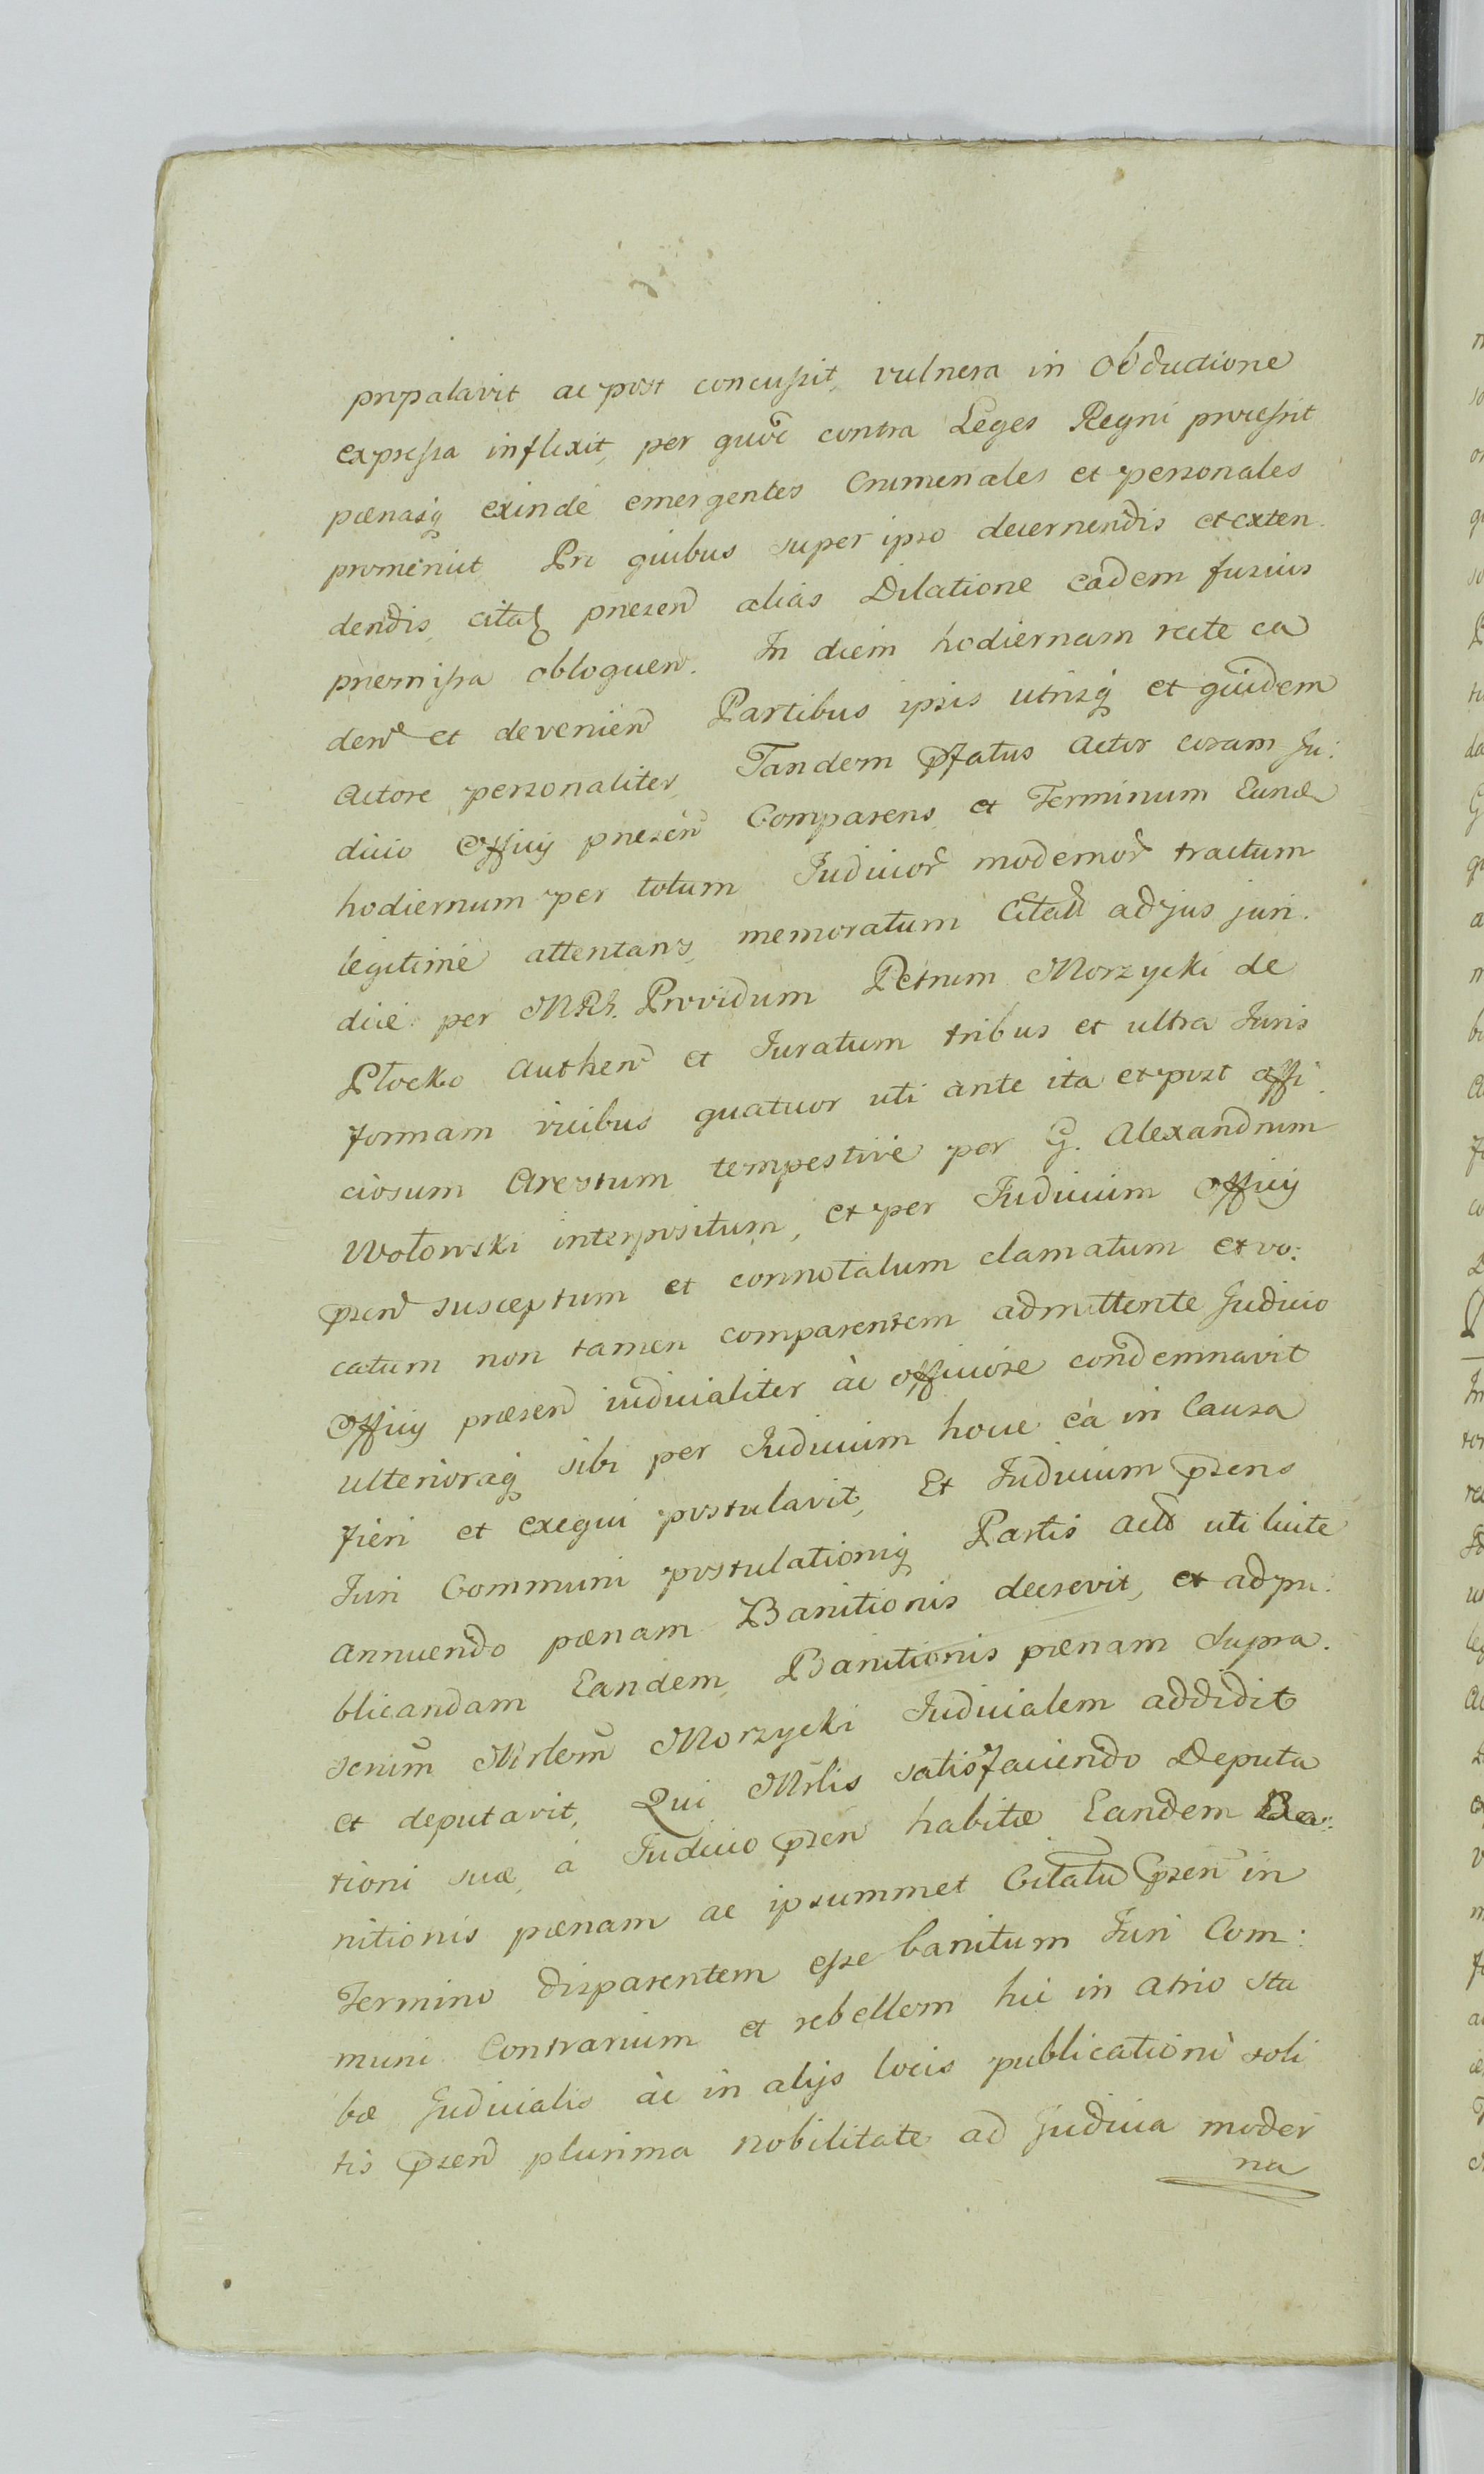 propalavit ac post concussit, vulnera in Obductione
expressa inflixit, per quod contra Leges Regni processit
pœnasq exinde emergentes Criminales et personales
promeruit Pro quibus super ipso decernendis et exten
dendis, citat presen alias Dilatione eadem fusius
premissa obloquen. In diem hodiernam recte ca
den et devenien Partibus ipsis utrisq et quidem
Actore personaliter Tandem Pfatus Actor coram Ju:
dicio Officÿ presen Comparens et Terminum Eund
hodiernum per totum Judicior modernor tractum
legitime attentans, memoratum Citatu ad jus juri.
dice per MRl. Providum Petrum Morzycki de
Płocko Authen et Juratum tribus et ultra Juris
formam vicibus quatuor uti ante ita et post offi.
ciosum Arestum tempestive per G. Alexandrum
Wołowski interpositum, et per Judicium Officÿ
psen susceptum et connotatum clamatum et vo:
catum non tamen comparentem admittente Judicio
Officÿ præsen iudicialiter ac officiose condemnavit
ulterioraq sibi per Judicium hocce ea in Causa
fieri et exequi postulavit, Et Judicium psens
Juri Communi postulationiq Partis Act uti licite
annuendo pœnam Banitionis decrevit, et ad pu:
blicandam Eandem Banitionis pœnam Supra.
scrium Mrlem Morzycki Judicialem addidit
et deputavit, Qui Mrlis satisfaciendo Deputa
tioni suæ, a Judicio psen habitæ Eandem Ba:
nitionis pœnam ac ipsummet Citatu psen in
Termino disparentem esse banitum Juri Com:
muni Contrarium et rebellem hic in atrio Stu
bæ Judicialis ac in alÿs locis publicationi soli
tis psen plurima nobilitate ad Judicia moder
na